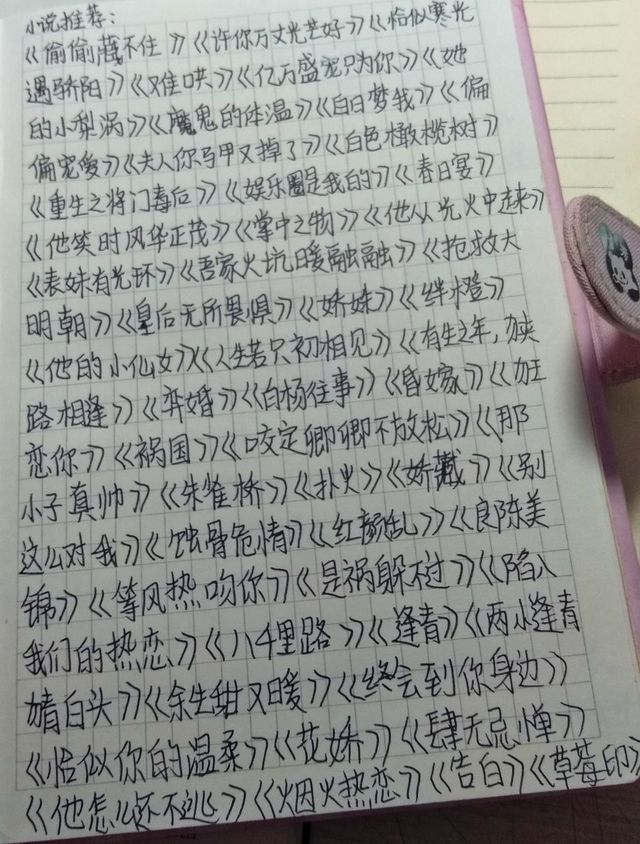 小说推荐:
《偷偷藏不住》《许你万丈光芒好》《恰似寒光
遇骄阳》《难哄》《亿万盛宠只为你》《她
的小梨涡》《魔鬼的体温》《白日梦我》《偏
偏宠爱》《夫人你马甲又掉了》《白色橄榄树》
《重生之将门毒后》《娱乐圈是我的》《春日宴》
《他笑时风华正茂》《掌中之物》《他从光火中走来》
《表妹有光环》《吾家火坑暖融融》《抢救大
明朝》《皇后无所畏惧》《娇妹》《绊橙》
《他的小仙女》《人生若只初相见》《有生之年,狭
路相逢》《弈婚》《白杨往事》《昏嫁》《加
恋你》《祸国》《咬定卿卿不放松》《那
小子真帅》《朱雀桥》《扑火》《娇藏》《别
这么对我》《蚀骨危情》《红颜乱》《良陈美
锦》《等风热吻你》《是祸躲不过》《陷入
我们的热恋》《八千里路》《逢青》《两小逢青
婧白头》《余生甜又暖》《终会到你身边》
《恰似你的温柔》《花娇》《肆无忌惮》
《他怎么还不逃》《烟火热恋》《告白》《草莓印》